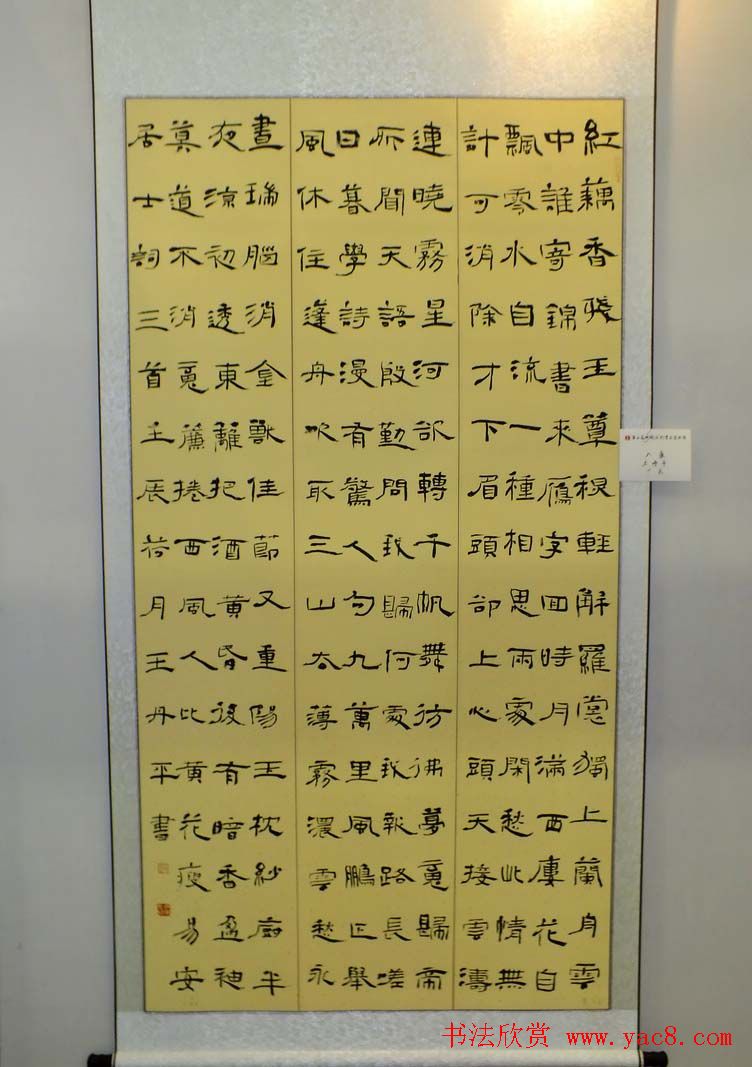 紅藕香殘玉簟秋輕解羅裳獨上蘭舟雲
中誰寄錦書來鴈字回時月滿西樓花自
飄零水自流一種相思兩處閑愁此情無
計可消除才下眉頭卻上心頭天接雲濤
連曉霧星河欲轉千帆舞彷彿夢魂歸帝
所聞天語殷勤問我歸何處我報路長嗟
日暮學詩漫有驚人句九萬里風鵬正舉
風休住蓬舟吹取三山去薄霧濃雲愁永
晝瑞腦消金獸佳節又重陽玉枕紗廚半
夜涼初透東籬把酒黃昏後有暗香盈袖
莫道不消魂簾捲西風人比黃花瘦易安
居士詞三首壬辰荷月王丹平書
书法欣赏 www.yac8.com